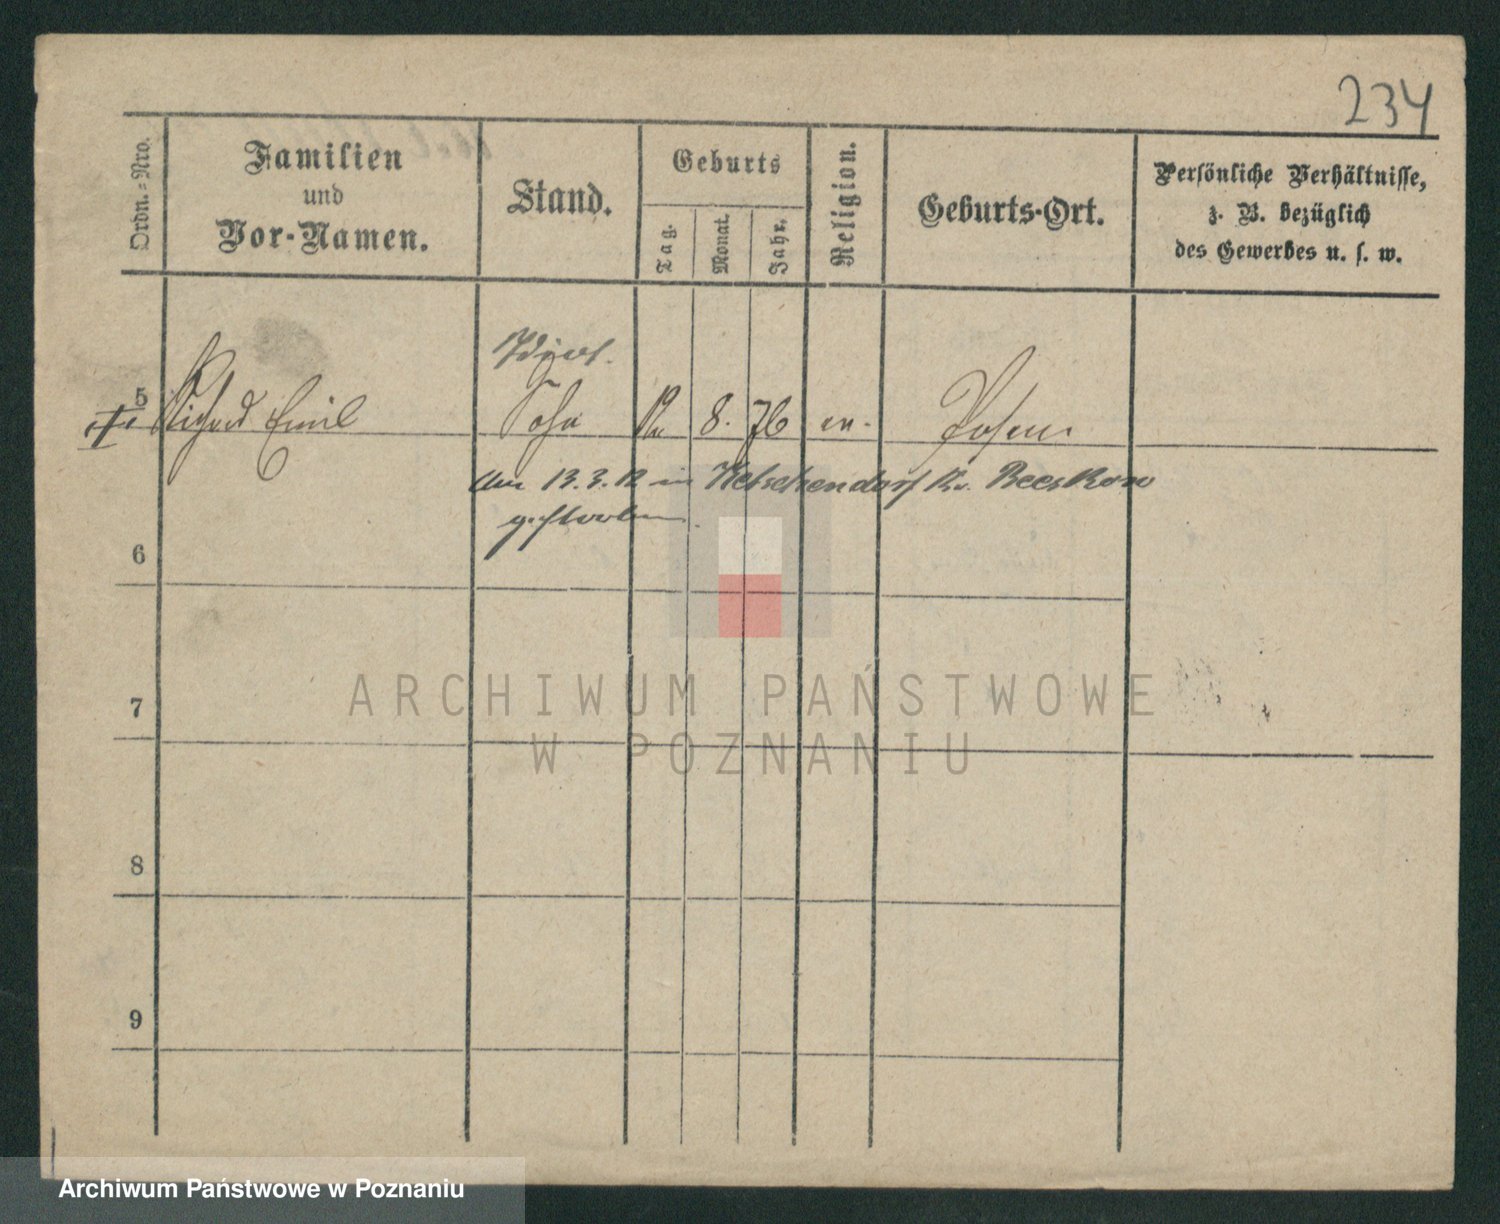 234
Ordn.=Nro.
Familien
und
Vor-Namen.
Stand.
Geburts
Tag.
Monat.
Jahr.
Religion.
Geburts-Ort.
Persönliche Verhältnisse,
z. B. bezüglich
des Gewerbes u. s. w.
5 Richard Emil Sohn 8. 76 ev. Posen
Am 13.3.12 in Ketschendorf Kr. Beeskow
gestorben.
6
7
ARCHIWUM PAŃSTWOWE
W POZNANIU
8
9
Archiwum Państwowe w Poznaniu